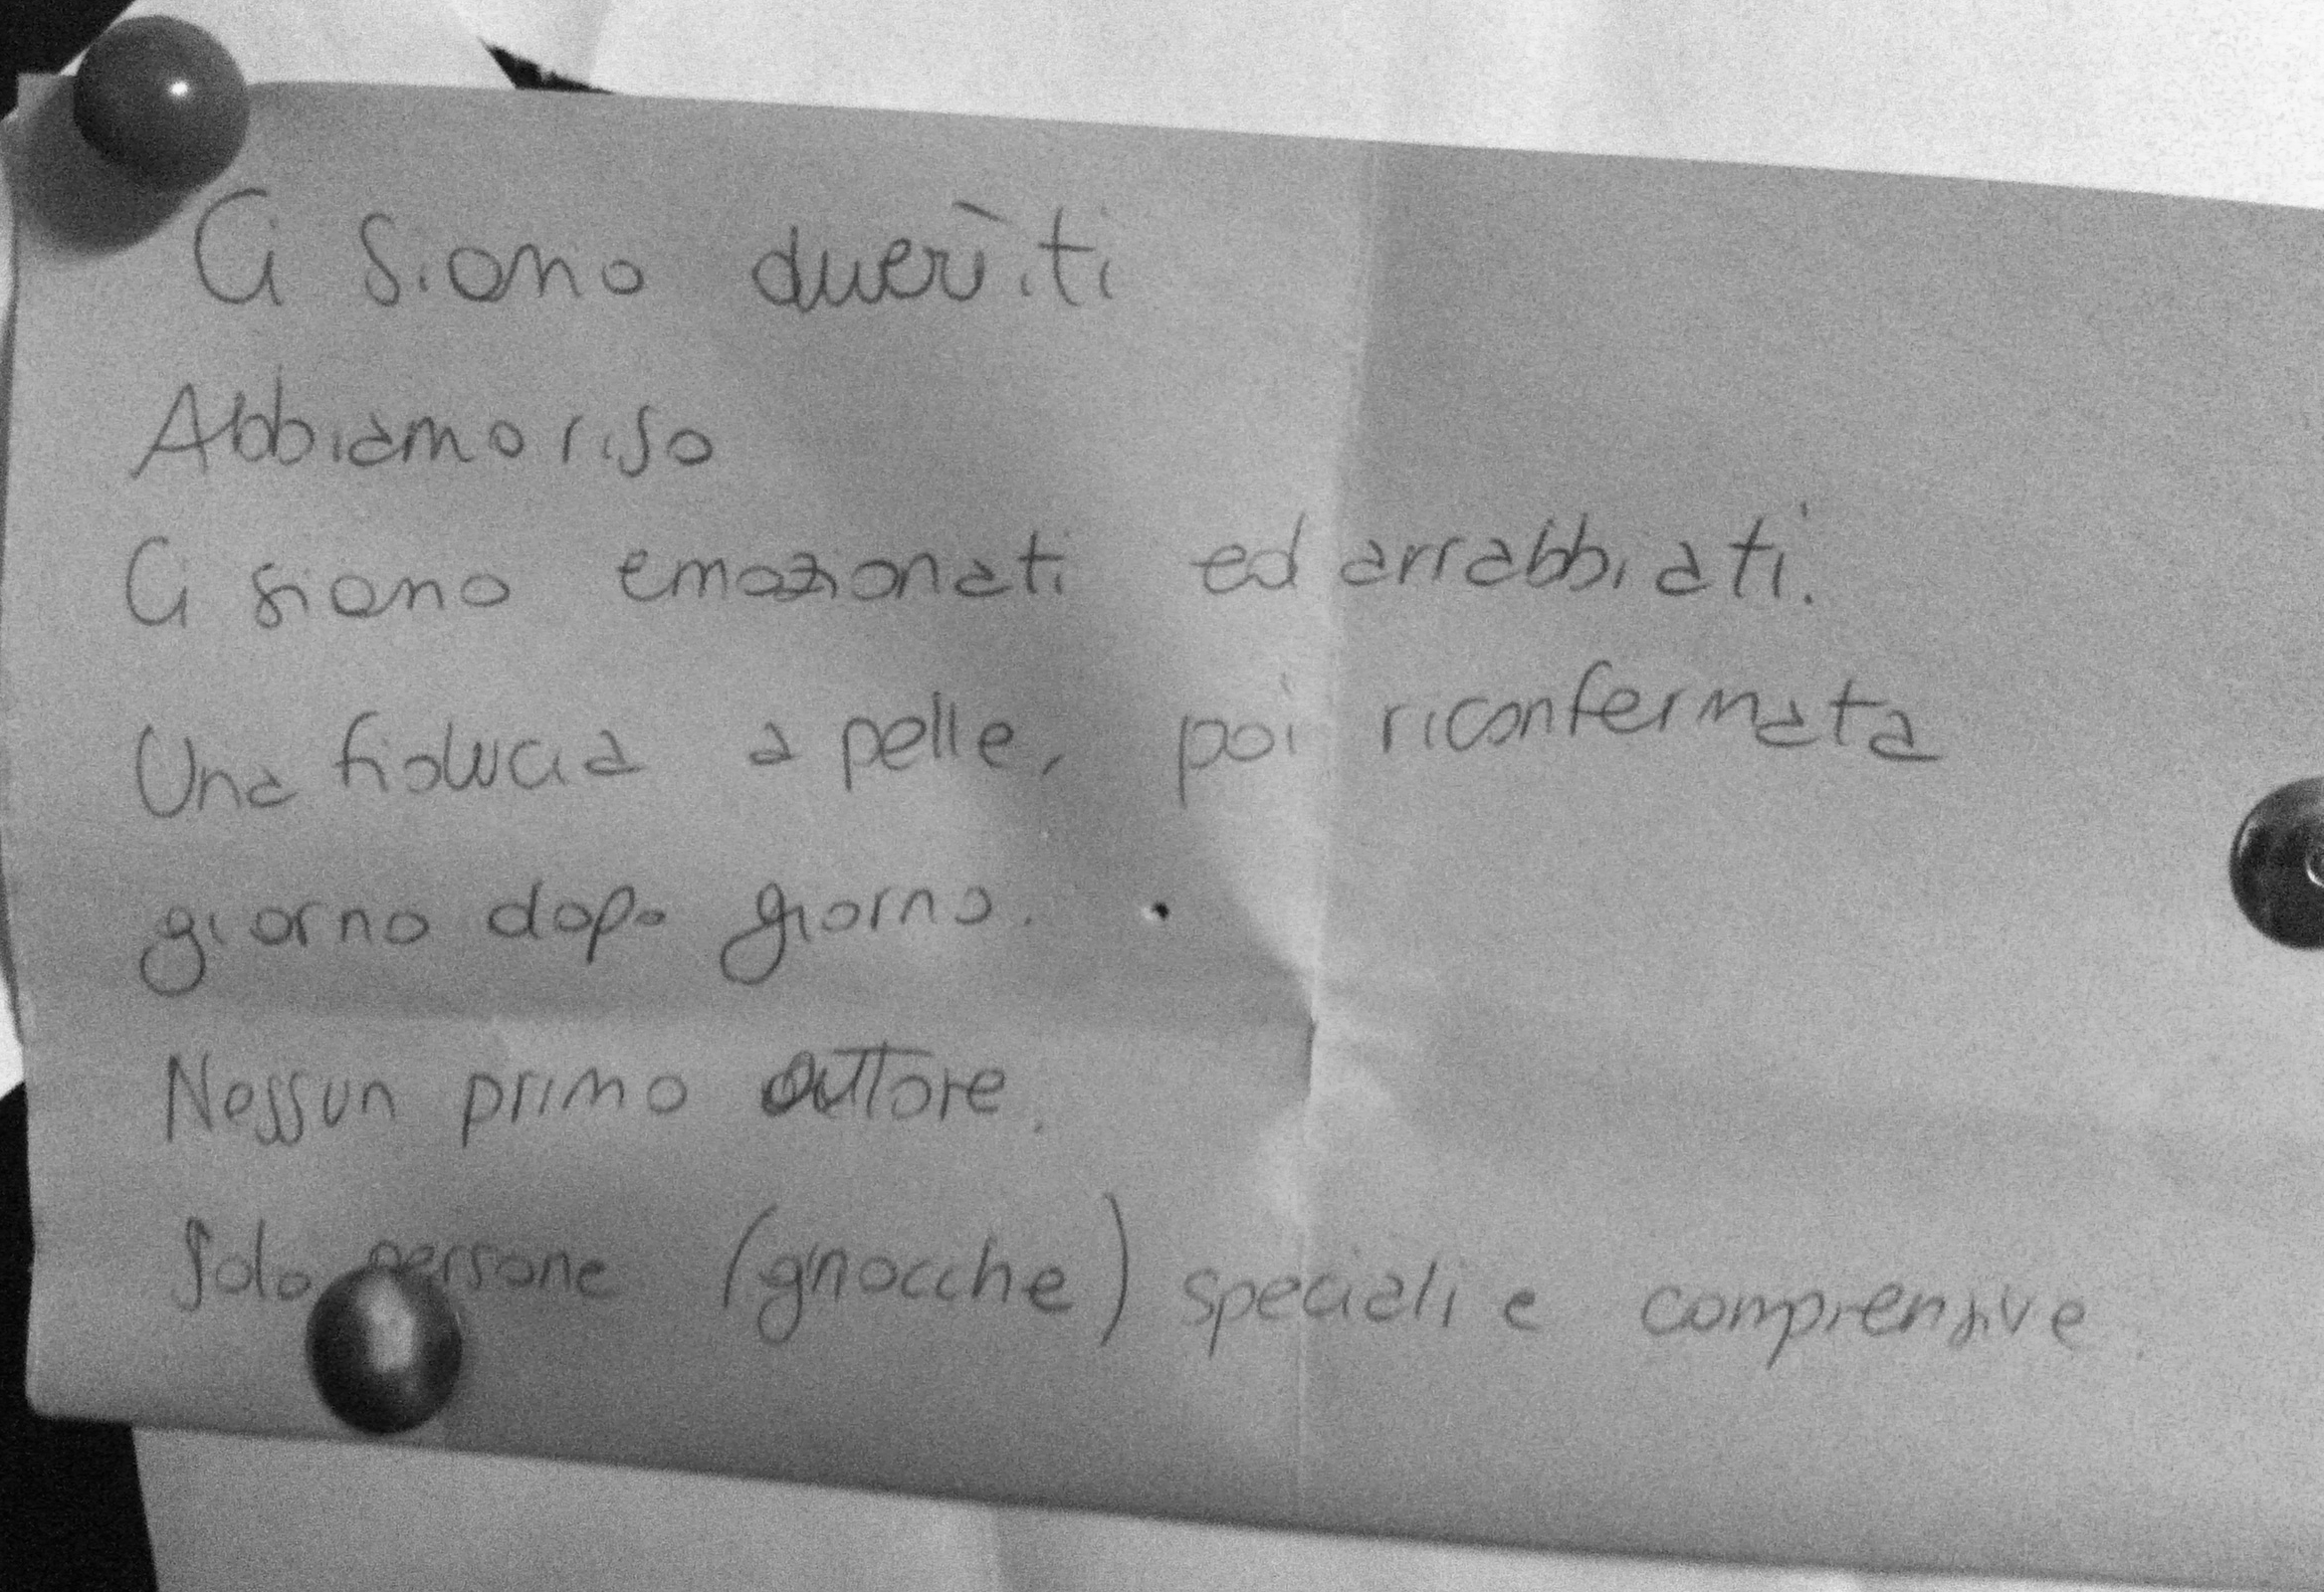 Ci siamo divertiti
Abbiamo riso
Ci siamo emozionati ed arrabbiati.
Una fiducia a pelle, poi riconfermata
giorno dopo giorno.
Nessun primo attore.
Solo persone (gnocche) speciali e comprensive.